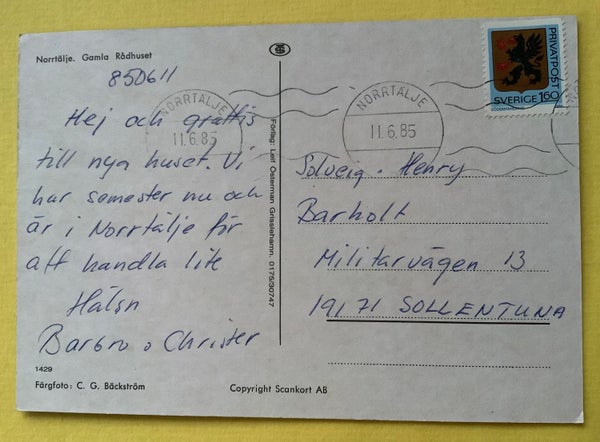 Norrtälje. Gamla Rådhuset
850611
Hej och grattis
till nya huset. Vi
har semester nu och
är i Norrtälje för
att handla lite
Hälsn
Barbro o Christer
1429
Färgfoto: C. G. Bäckström
Copyright Scankort AB
Förlag: Leif Österman Grisslehamn. 0175/30747
NORRTÄLJE
11.6.85
NORRTÄLJE
11.6.85
PRIVATPOST
SVERIGE 160
SÖDERMANLAND
Solveig . Henry
Barholt
Militärvägen 13
19171 SOLLENTUNA